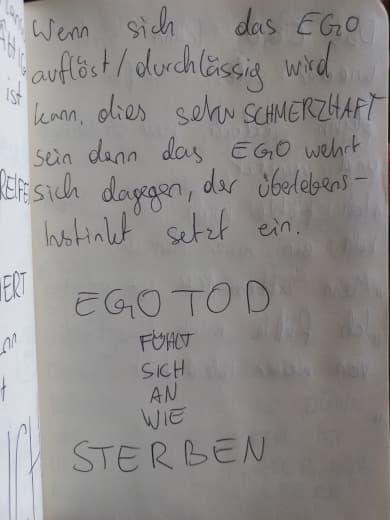 Wenn sich das EGO
auflöst/durchlässig wird
kann, dies sehr SCHMERZHAFT
sein denn das EGO wehrt
sich dagegen, der Überlebens-
Instinkt setzt ein.
EGO TOD
FÜHLT
SICH
AN
WIE
STERBEN
ist
REIFE